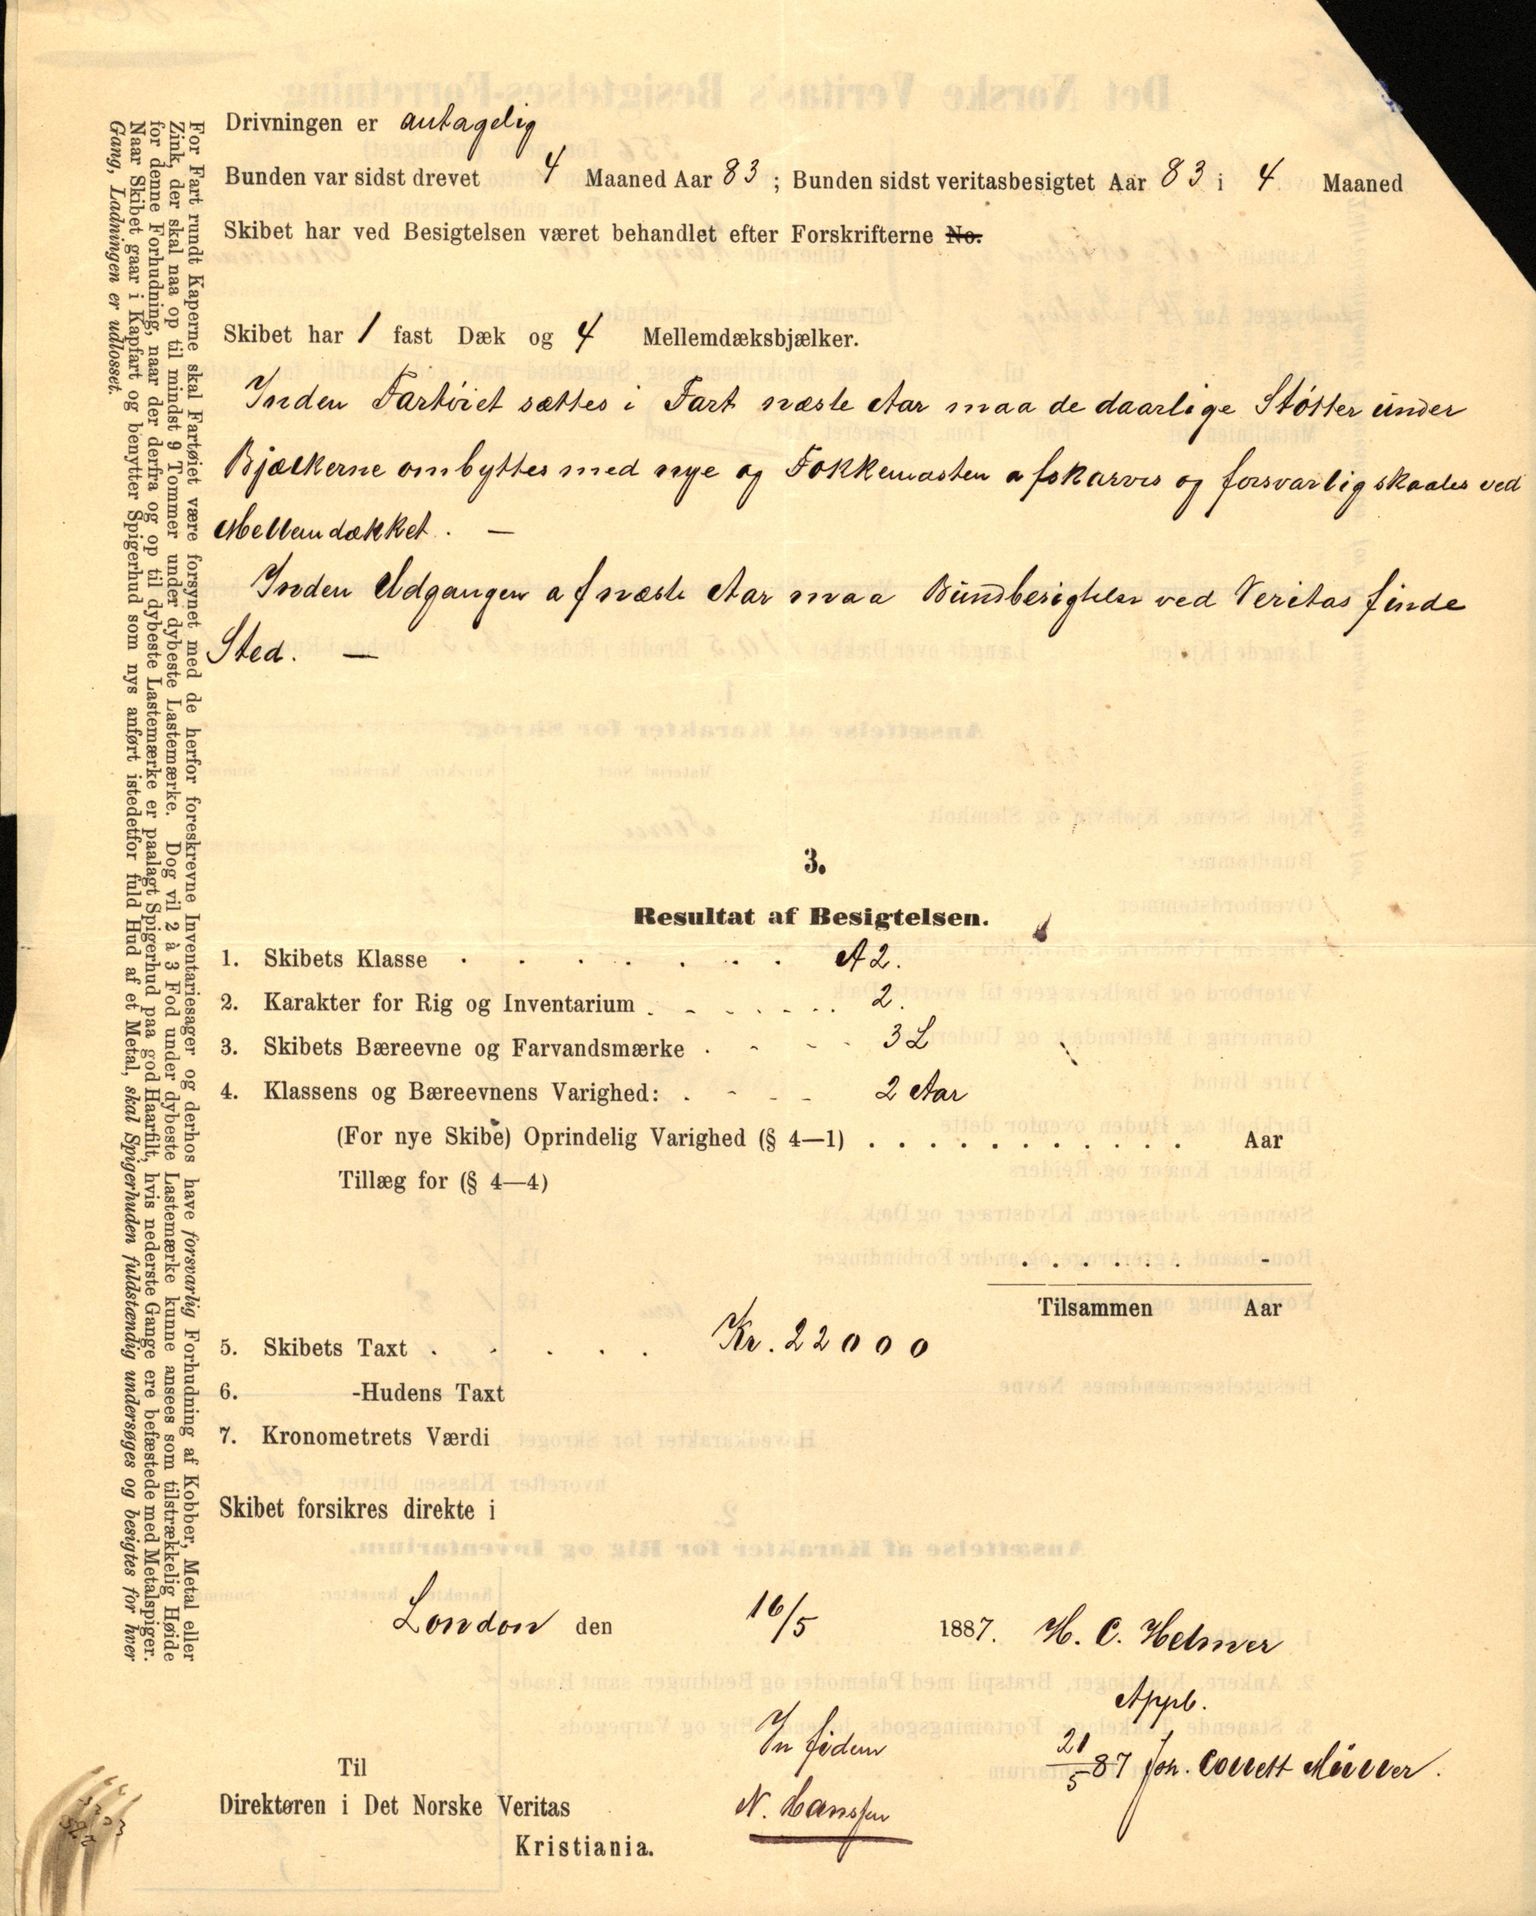 Drivningen er antagelig
Bunden var sidst drevet 4 Maaned Aar 83 ; Bunden sidst veritasbesigtet Aar 83 i 4 Maaned
Skibet har ved Besigtelsen været behandlet efter Forskrifterne No.
Skibet har 1 fast Dæk og 4 Mellemdæksbjælker.
Inden Fartøiet sættes i Fart næste Aar maa de daarlige Støtter under
Bjælkerne ombyttes med nye og Fokkemasten afskarves og forsvarlig skaales ved
Mellemdækket. —
Inden Udgangen af næste Aar maa Bundbesigtelse ved Veritas finde
Sted. —
3.
Resultat af Besigtelsen.
1. Skibets Klasse . . . . . . . A 2.
2. Karakter for Rig og Inventarium . . . . . . 2.
3. Skibets Bæreevne og Farvandsmærke . . . . 3 L
4. Klassens og Bæreevnens Varighed: . . . . 2 Aar
(For nye Skibe) Oprindelig Varighed (§ 4—1) . . . . . . . . . . . Aar
Tillæg for (§ 4—4)
. . . . . . . -
Tilsammen Aar
5. Skibets Taxt . . . . . Kr. 22000
6. -Hudens Taxt
7. Kronometrets Værdi
Skibet forsikres direkte i
London den 16/5 1887. H. C. Helmer
Appb.
In fidem
21/5 87 Joh. Collett Müller.
Til
Direktøren i Det Norske Veritas
N. Hanssen
Kristiania.
For Fart rundt Kaperne skal Fartøiet være forsynet med de herfor foreskrevne Inventariesager og derhos have forsvarlig Forhudning af Kobber, Metal eller
Zink, der skal naa op til mindst 9 Tommer under dybeste Lastemærke. Dog vil 2 à 3 Fod under dybeste Lastemærke kunne ansees som tilstrækkelig Høide
for denne Forhudning, naar der derfra og op til dybeste Lastemærke er paalagt Spigerhud paa god Haarfilt, hvis nederste Gange ere befæstede med Metalspiger.
Naar Skibet gaar i Kapfart og benytter Spigerhud som nys anført istedetfor fuld Hud af et Metal, skal Spigerhuden fuldstændig undersøges og besigtes for hver
Gang, Ladningen er udlosset.